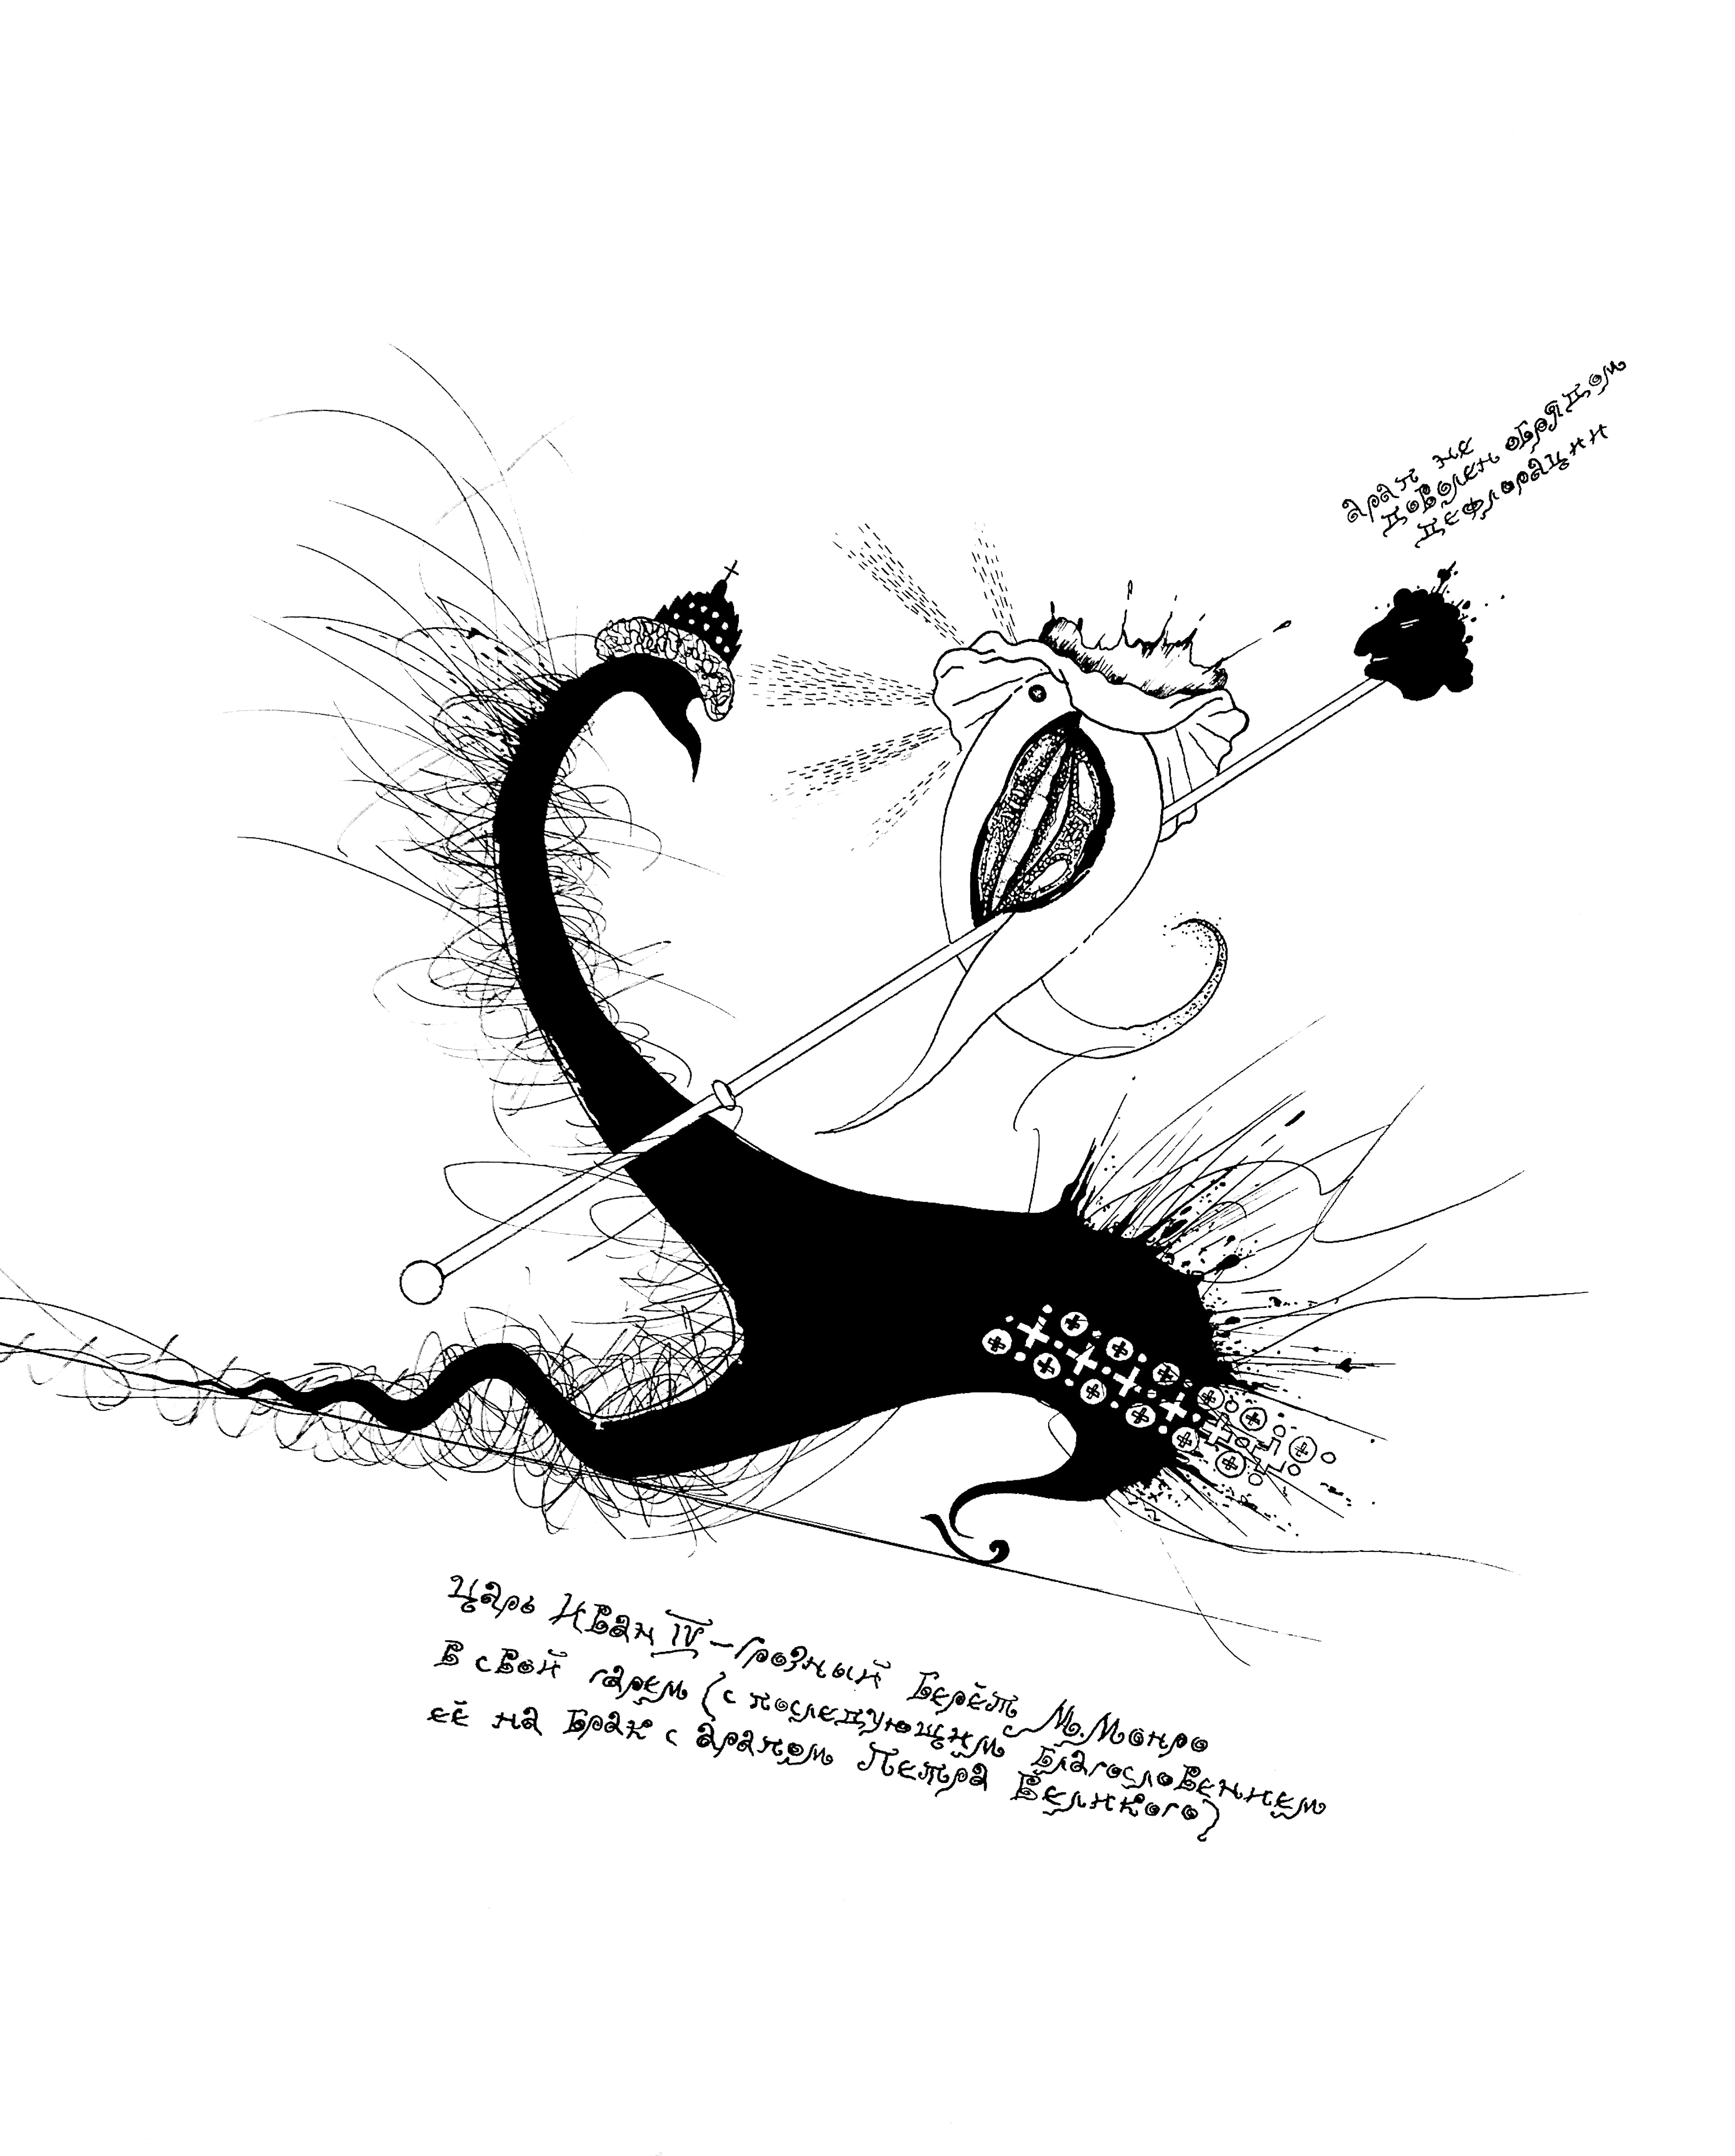 арап не
доволен обрядом
дефлорации
Царь Иван IV – Грозный берёт М. Монро
в свой гарем (с последующим благословением
её на брак с арапом Петра Великого)